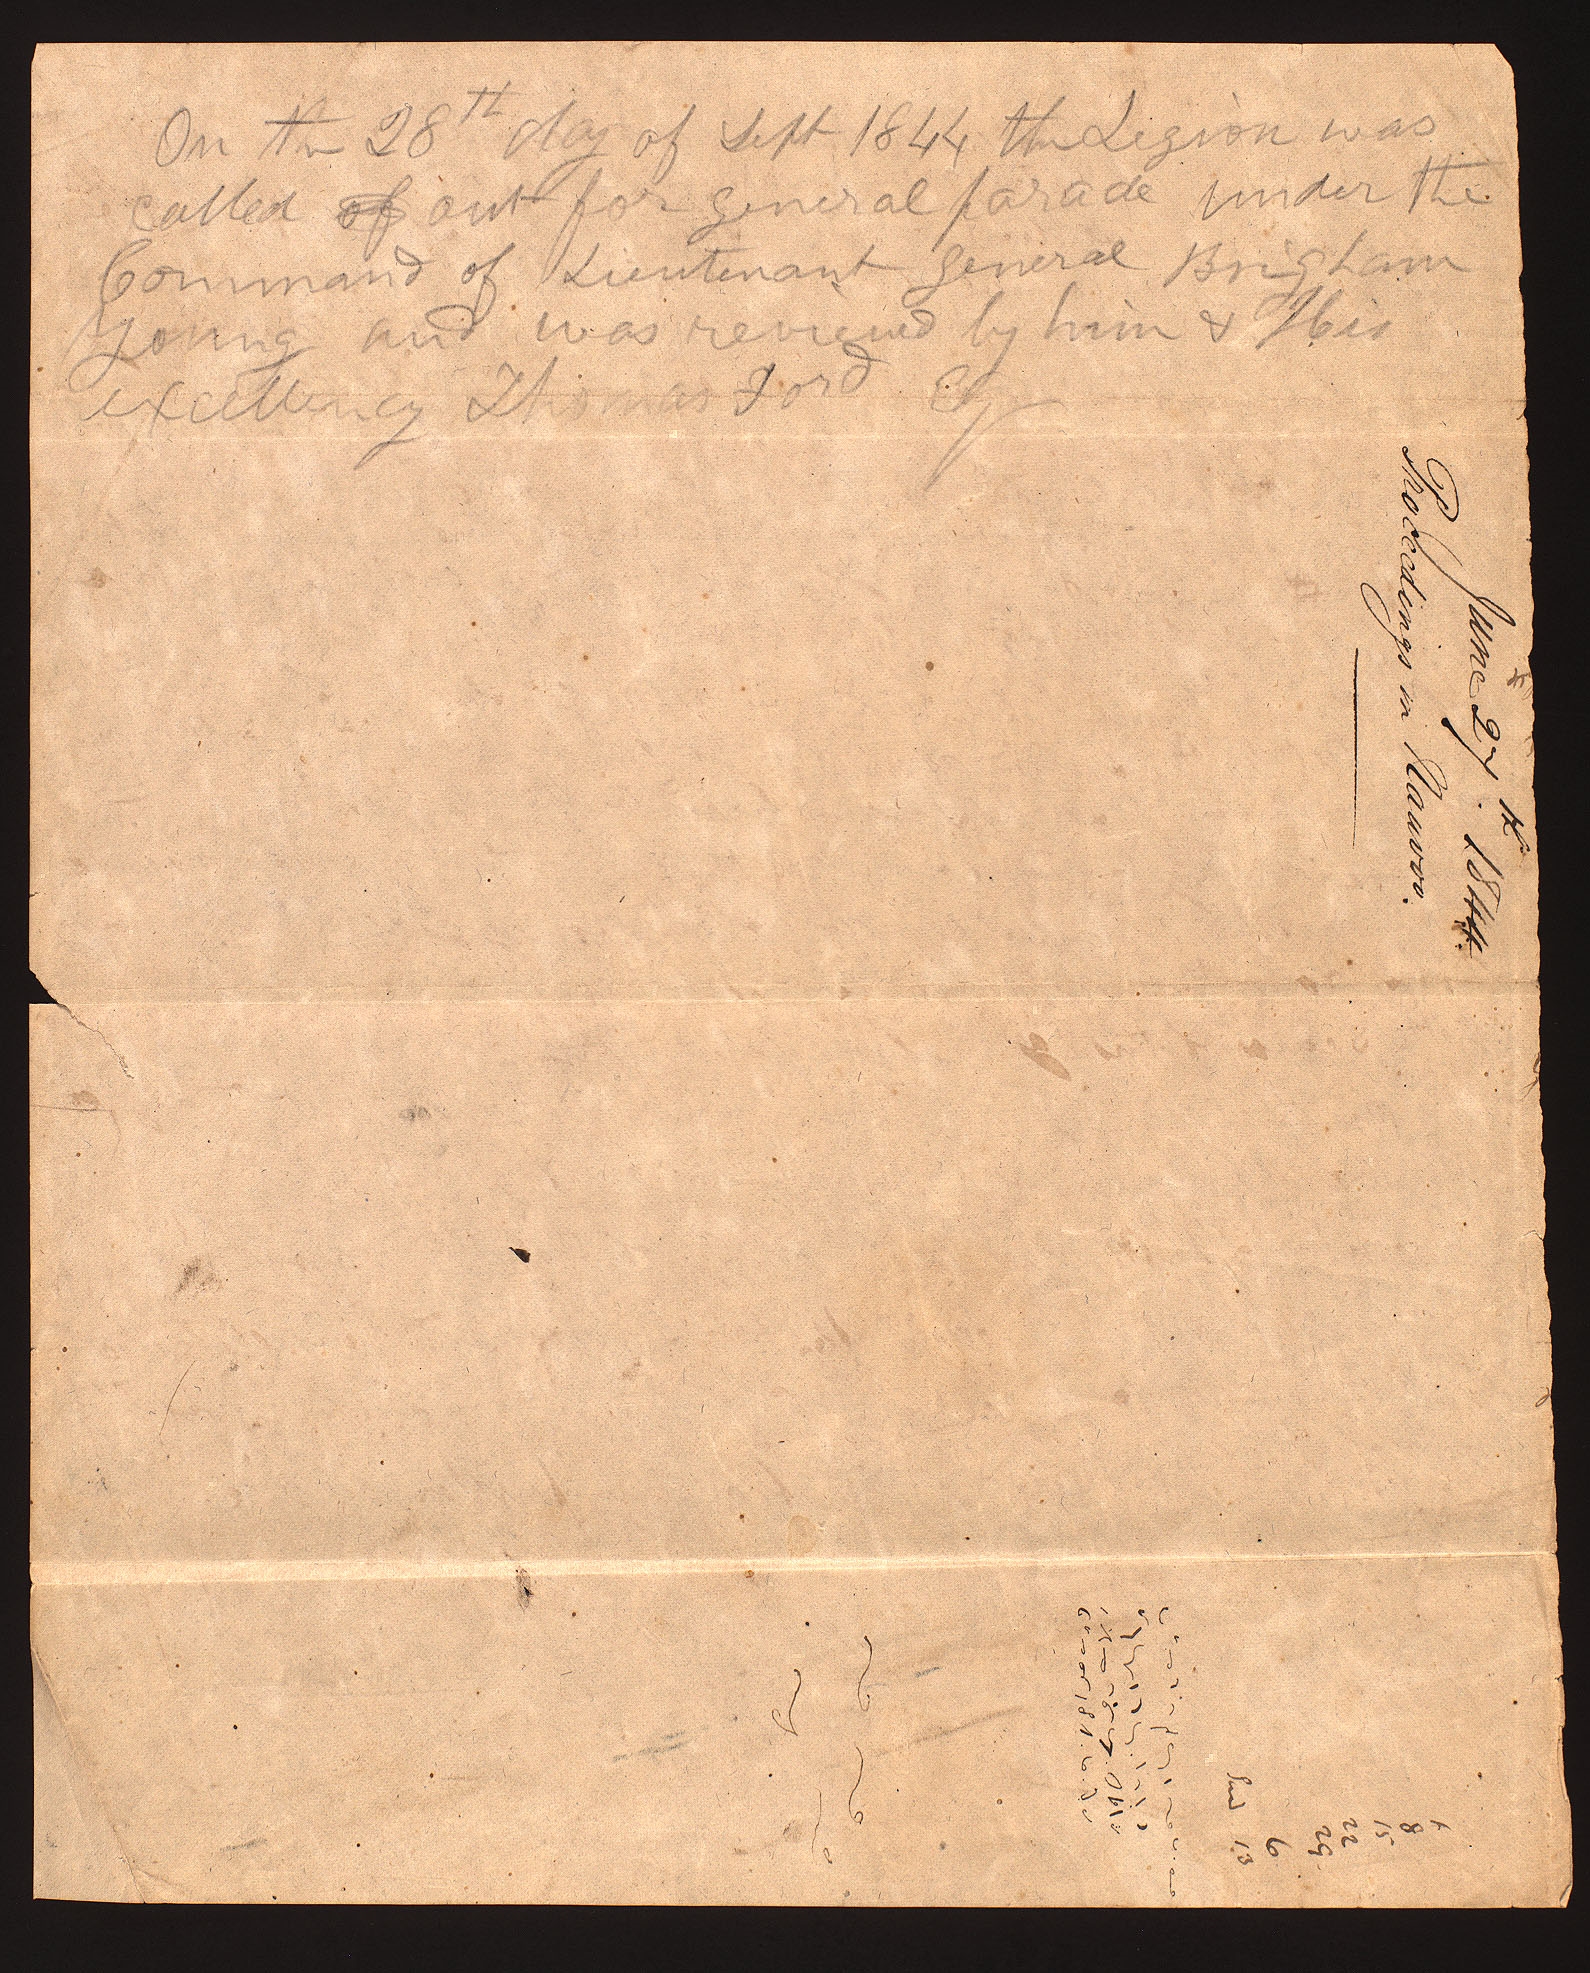 On the 28th day of Sept 1844 the Legion was
called of out for general parade under the
Command of Lieutenant general Brigham
Young and was reviewed by him & His
excellency Thomas Ford Esq
June 27th. 1844.
Proceedings in Nauvoo.
8
15
22
29
6
13